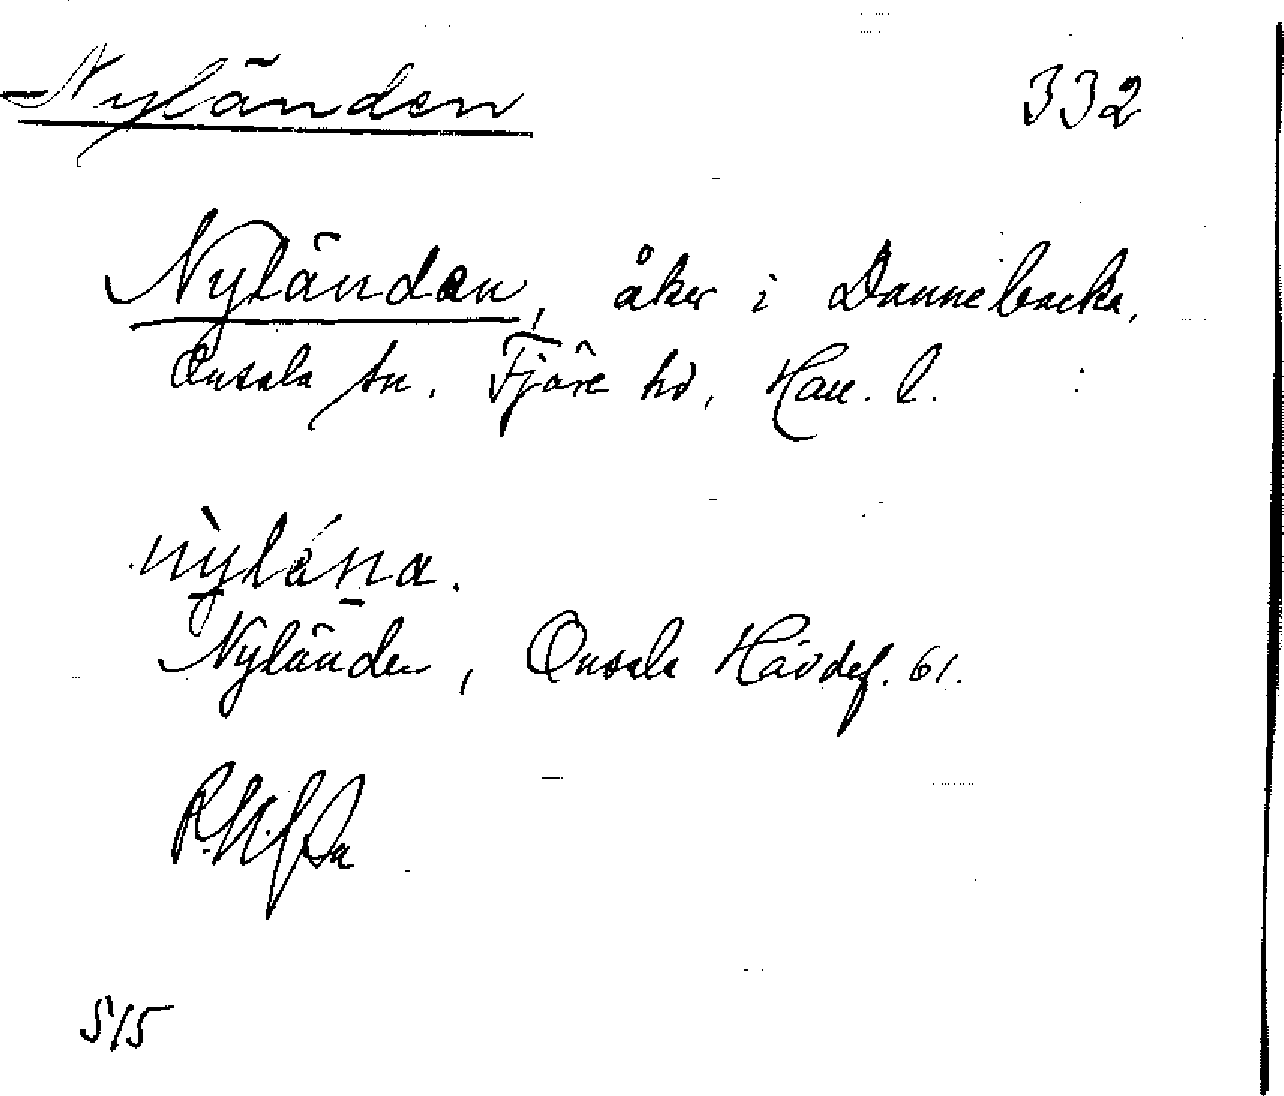 Nyländen 332
Nyländen, åker i Dannebacka,
Onsala sn. Fjäre hd, Hall. l.
nylána.
Nyländen, Onsala Hävdef. 61.
515